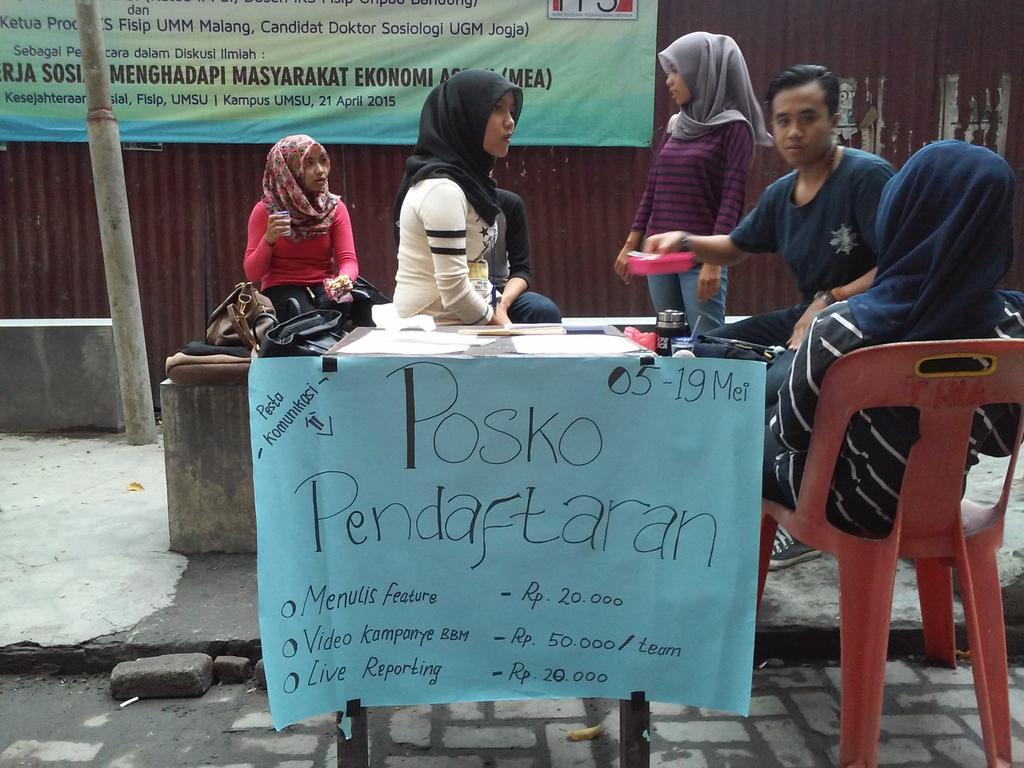 dan
Ketua Prodi KS Fisip UMM Malang, Candidat Doktor Sosiologi UGM Jogja)
Sebagai dalam Diskusi Ilmiah :
MENGHADAPI MASYARAKAT EKONOMI (MEA)
Fisip, UMSU | Kampus UMSU, 21 April 2015
Pesta
Komunikasi
II
05 - 19 Mei
Posko
Pendaftaran
Menulis feature - Rp. 20.000
Video kampanye BBM - Rp. 50.000 / team
Live Reporting - Rp. 20.000